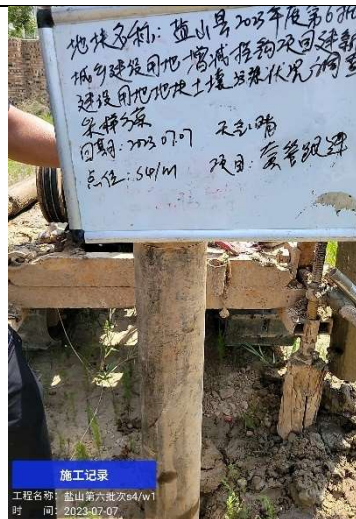 地块名称：盐山县2023年度第6批
城乡建设用地增减挂钩项目建新
建设用地地块土壤污染状况调查
采样方案
日期：2023.07.07 天气：晴
点位：S4/W1 项目：套管跟进
施工记录
工程名称：盐山第六批次s4/w1
时 间：2023-07-07